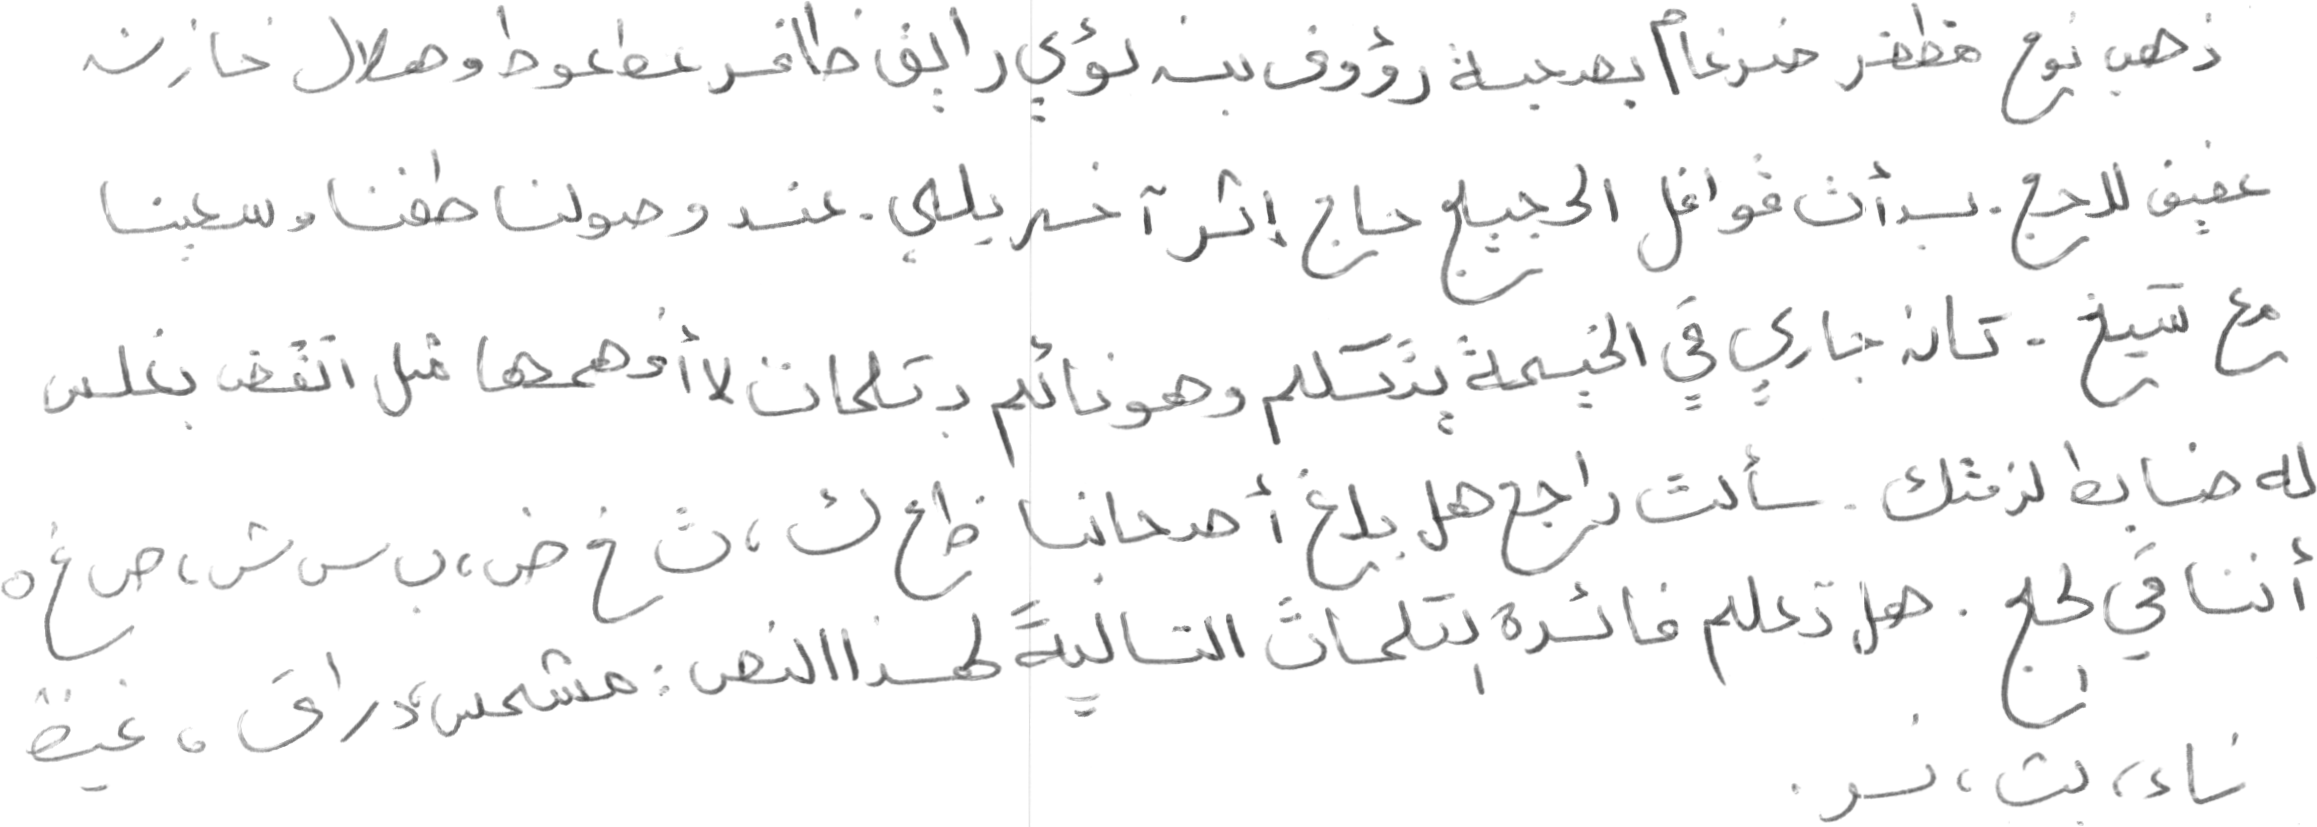 ذهب نوع مظفر ضرغام بصحبة رؤوف بن لؤي رايق ظافر عطعوط وهلال خازن
عفيف للحج. بدأت قوافل الحجيج حاج إثر آخر يلبي. عند وصولنا طفنا وسعينا
مع شيخ. كان جاري في الخيمة يتكلم وهو نائم بكلمات لا أفهمها مثل انقض بغلس
له ضابط لزمتك. سألت راجح هل بلغ أصحابنا ظاع ك، ث خ ض، ب س ش، ص غ ه
أننا في الحج. هل تعلم فائدة الكلمات التالية لهذا النص: مشمس، دراق، غيظ
ناء، بت، نر.